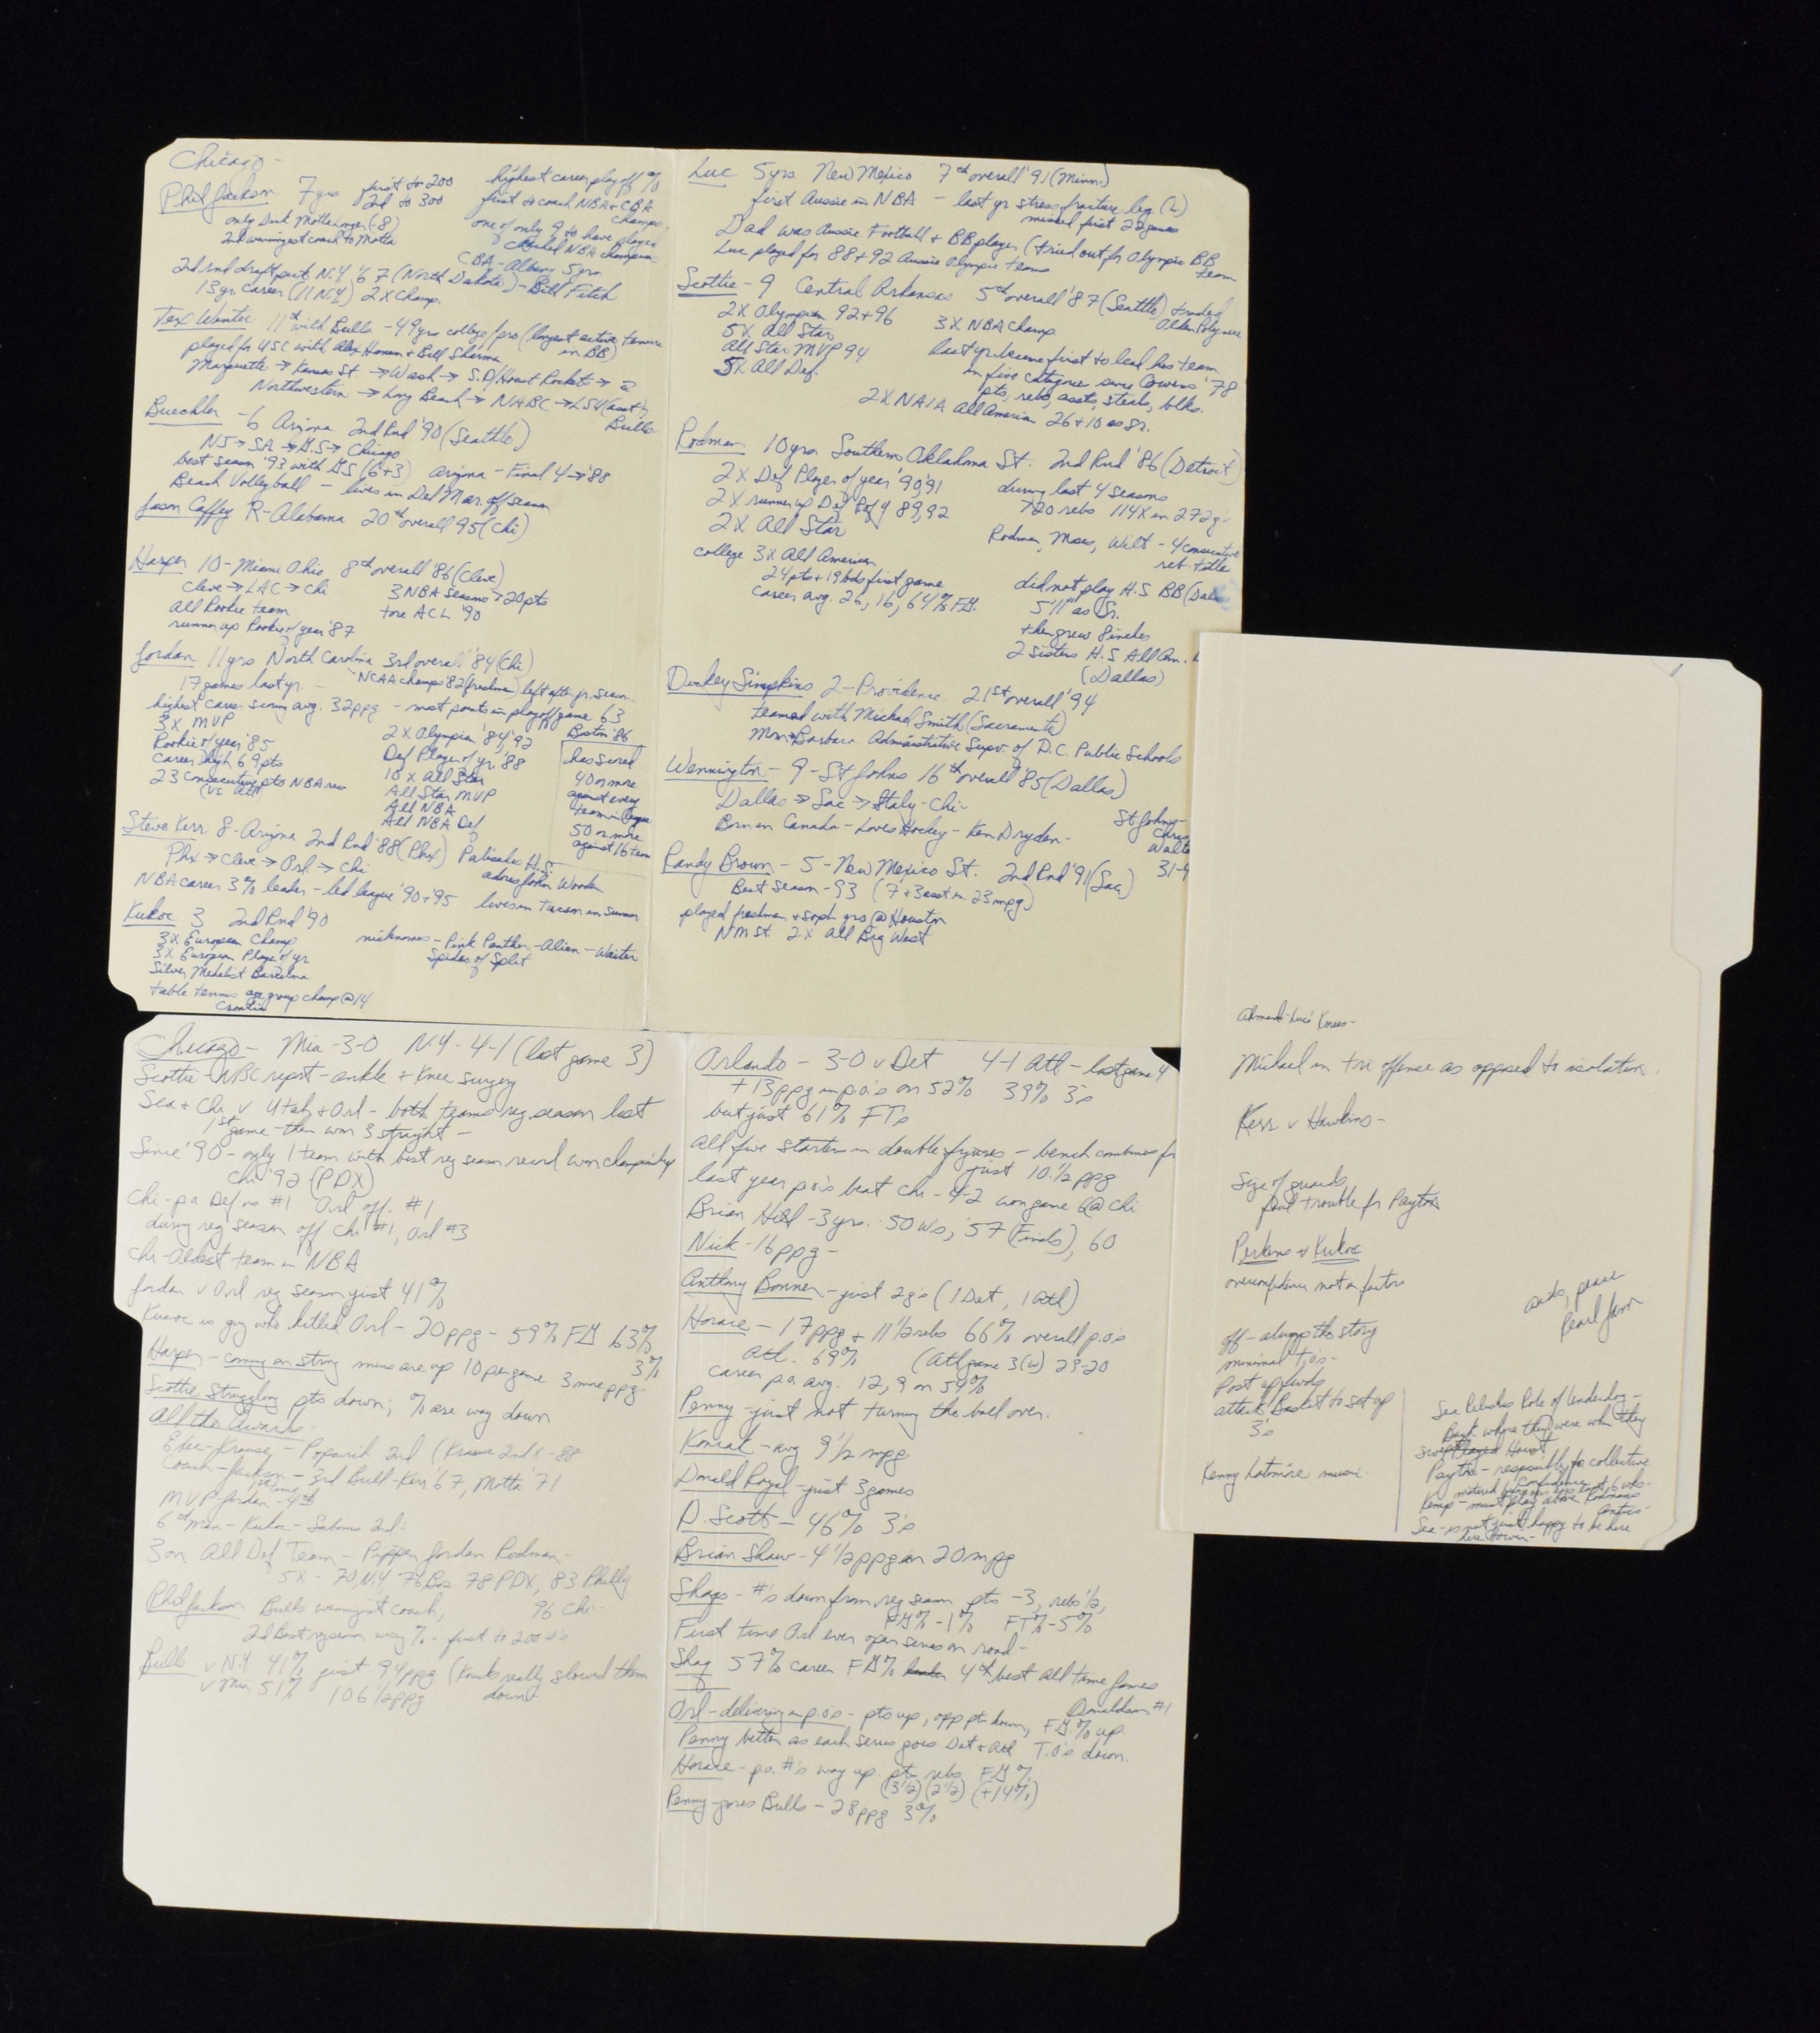 Chicago -
Phil Jackson 7 yrs first to 200
2nd to 300
only Dick Motta longer (-8)
2nd winningest coach to Motta
highest career playoff %
first to coach NBA + CBA
champs
one of only 9 to have played
+ coached NBA champion
CBA - Albany 5 yrs
2nd rnd draft pick N.Y. '67 (North Dakota) - Bill Fitch
13 yr. career (11 N.Y.) 2X Champ.
Tex Winter 11th with Bulls - 49 yrs college/pro (longest active tenure
in BB)
played for USC with Alex Hannum + Bill Sharman
Marquette → Kansas St. → Wash → S.D/Houst Rockets →
Northwestern → Long Beach → NABC → LSU (asst),
Bulls
Buechler - 6 Arizona 2nd Rnd '90 (Seattle)
NJ → SA → G.S → Chicago
best season '93 with GS (6+3) Arizona - Final 4 → '88
Beach Volleyball - lives in Del Mar off season
Jason Caffey R - Alabama 20th overall 95 (Chi)
Harper 10 - Miami Ohio 8th overall '86 (Cleve)
Cleve → LAC → Chi 3 NBA seasons > 20 pts
All Rookie team tore ACL '90
runner up Rookie of year '87
Jordan 11 yrs North Carolina 3rd overall '84 (Chi)
17 games last yr. - NCAA champs 82 (freshman) left after jr. season
highest career scoring avg. 32 ppg - most points in playoff game 63
Boston '86
3X MVP
Rookie of year '85
Career high 69 pts
23 consecutive pts NBA rec
(vs. Atl)
2X Olympian '84, '92
Def Player of yr. '88
10 X All Star
All Star MVP
All NBA
All NBA Def
has scored
40 or more
against every
team in league
50 or more
against 16 teams
Steve Kerr 8 - Arizona 2nd Rnd '88 (Phx) Palisades H.S.
Phx → Cleve → Orl → Chi adores John Wooden
NBA career 3% leader - led league '90 + '95 lives in Tucson in summer
Kukoc 3 2nd Rnd '90
3X European Champ
3X European Player of yr.
Silver Medalist Barcelona
table tennis age group champ @ 14
Croatia
nicknames - Pink Panther - Alien - Waiter
Spider of Split
Luc 5 yrs New Mexico 7th overall '91 (Minn.)
first Aussie in NBA - last yr stress fracture leg (L)
missed first 22 games
Dad was Aussie Football + BB player (tried out for Olympic BB
team
Luc played for 88 + 92 Aussie Olympic teams
Scottie - 9 Central Arkansas 5th overall '87 (Seattle) traded
Olden Polynice
2X Olympian 92 + 96 3X NBA Champ
5X All Star
All Star MVP 94
5X All Def.
last yr. became first to lead his team
in five categories since Cowens '78
pts, rebs, assts, steals, blks.
2X NAIA All America 26 + 10 as Sr.
Rodman 10 yrs Southern Oklahoma St. 2nd Rnd '86 (Detroit)
2X Def Player of year '90, 91
2X runner up Def P of Y 89, 92
2X All Star
during last 4 seasons
>20 rebs 114X in 272 g
Rodman, Moses, Wilt - 4 consecutive
reb title
college 3X All American
24 pts + 19 bds first game
career avg. 26, 16, 64% FG.
did not play H.S BB
5'11" as Sr.
then grew 8 inches
2 sisters H.S All Am.
(Dallas)
Dickey Simpkins 2 - Providence 21st overall '94
teamed with Michael Smith (Sacramento)
Mom → Barbara Administrative Supv. of D.C. Public Schools
Wennington - 9 - St Johns 16th overall '85 (Dallas)
Dallas → Sac → Italy - Chi
Born in Canada - Loves Hockey - Ken Dryden -
St Johns -
Chris
Walter
31-4
Randy Brown - 5 - New Mexico St. 2nd Rnd '91 (Sac)
Best season - 93 (7 + 3 asst in 23 mpg)
played freshman + soph yrs @ Houston
NM St. 2X All Big West
Chicago - Mia - 3-0 N.Y. - 4-1 (lost game 3)
Scottie - NBC report - ankle + knee surgery
Sea + Chi v Utah + Orl - both teams reg season lost
1st game - then won 3 straight -
Since '90 - only 1 team with best reg season record won championship
Chi '92 (PDX)
Chi - p.o. Def is #1 Orl off. #1
during reg season off Chi #1, Orl #3
Chi - Oldest team in NBA
Jordan v Orl reg season just 41%
Kukoc is guy who killed Orl - 20 ppg - 59% FG 63%
3%
Harper - coming on strong mins are up 10 per game 3 more ppg.
Scottie Struggling pts down; % are way down
All the Awards
Exec - Krause - Popovich 2nd (Krause 2nd X - 88
Coach - Jackson - 3rd Bull - Kerr '67, Motta '71
1st time
MVP Jordan - 4th
6th Man - Kukoc - Sabonis 2nd -
3 on All Def Team - Pippen Jordan Rodman -
5X - 70 N.Y, 76 Bos 78 PDX, 83 Philly
96 Chi -
Phil Jackson Bulls winningest coach,
2nd Best reg season wng % - first to 200 W's
Bulls v N.Y 41% just 94 ppg (Knicks really slowed them
down
v Mia 51% 106 1/2 ppg
Orlando - 3-0 v Det 4-1 Atl - lost game 4
+ 13 ppg in p.o.'s on 52% 39% 3's
but just 61% FTs
All five starters in double figures - bench combines for
just 10 1/2 ppg
last year p.o.'s beat Chi - 4-2 won game 6 @ Chi
Brian Hill - 3 yrs. 50 W's, 57 (Finals), 60
Nick - 16 ppg -
Anthony Bonner - just 2 g's (1 Det, 1 Atl)
Horace - 17 ppg + 11 1/2 rebs 66% overall p.o.'s
Atl. 69% (Atl game 3 (W) 29-20
career p.o. avg. 12, 9 on 54%
Penny - just not turning the ball over.
Koncak - avg 9 1/2 mpg
Donald Royal - just 3 games
D. Scott - 46% 3's
Brian Shaw - 4 1/2 ppg in 20 mpg
Shaq - #'s down from reg season pts -3, rebs 1/2,
FG% -1% FT% -5%
First time Orl ever open series on road -
Shaq 57% career FG% 4th best all time
Donaldson #1
Orl - delivering in p.o.'s - pts up, opp pts down, FG% up
Penny better as each series goes Det + Atl T.O's down.
Horace - p.o. #'s way up. pts rebs FG%
(3 1/2) (2 1/2) (+14%)
Penny - goes Bulls - 28 ppg 3%
Ahmad - Luc's Knees -
Michael in tri offense as opposed to isolation.
Kerr v Hawkins -
Size of guards
foul trouble for Payton
Perkins v Kukoc
overconfidence not a factor
off - always the story
minimal T.O's -
Post up
attack Basket to set up
3's
Kenny Latimore music
acts, peace
Pearl Jam
Sea Relishes Role of Underdog -
Back where they were when they
swept Houst
Payton - responsibly to collective
Kemp - must play above Rodmans
antics -
Sea - is not just happy to be here